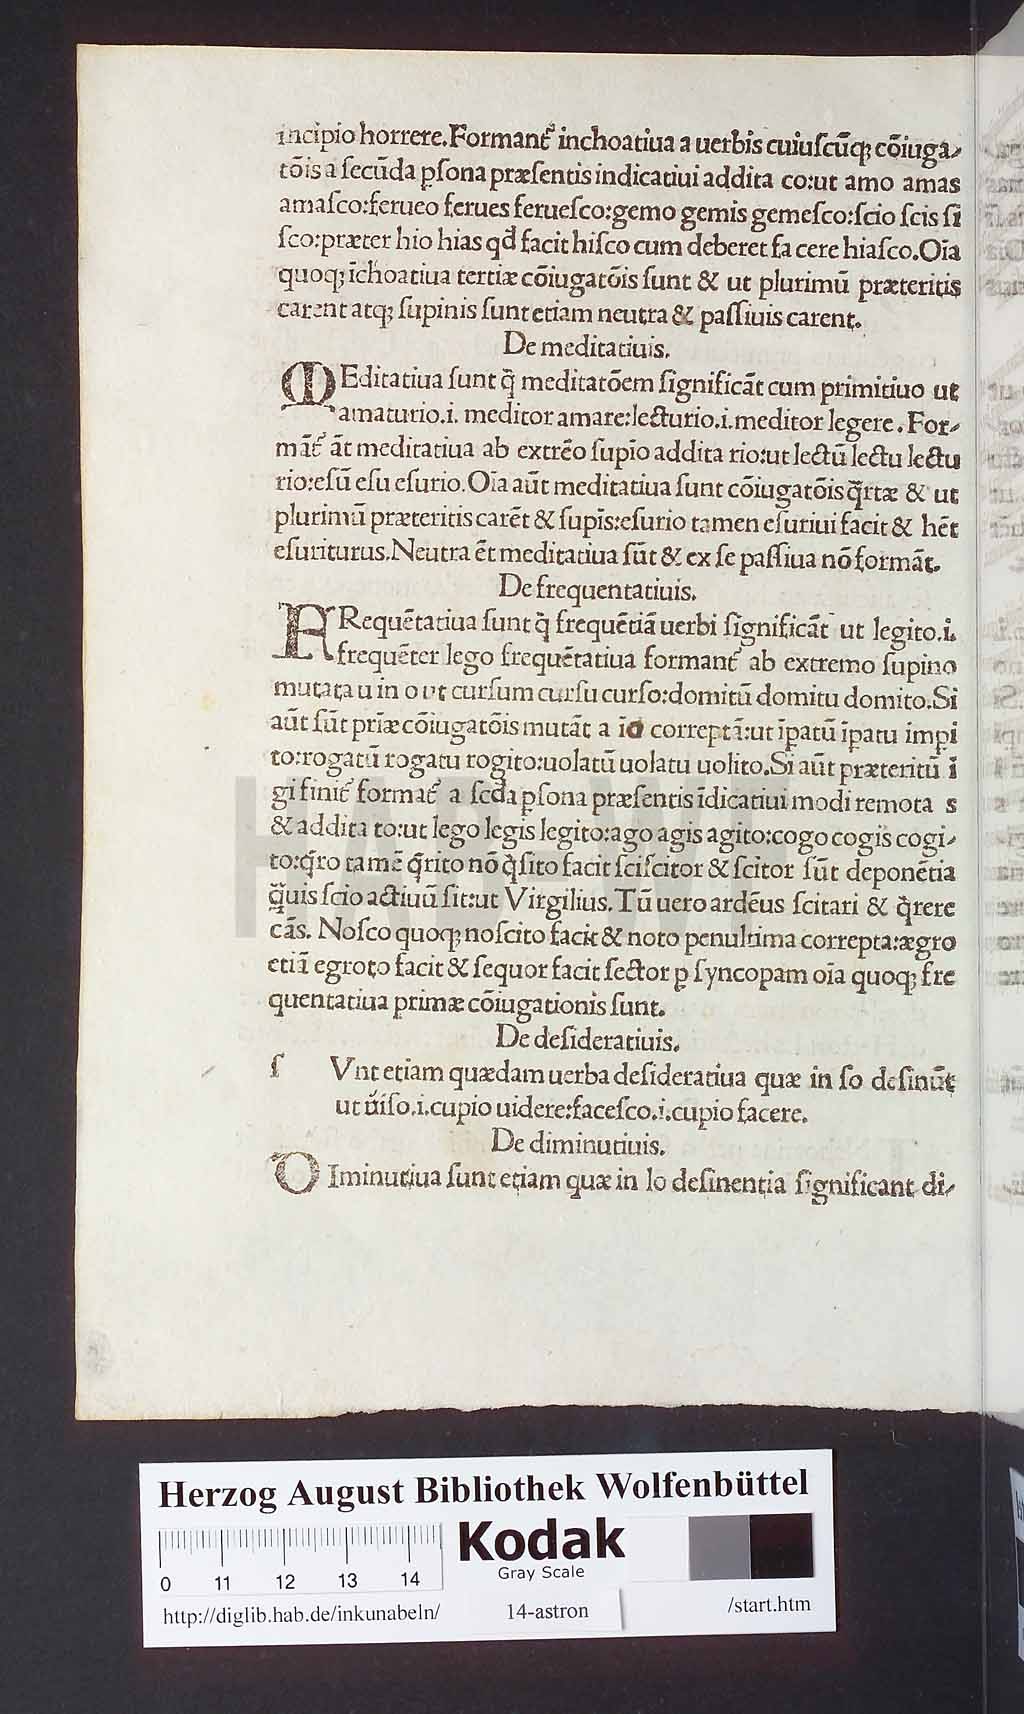 incipio horrere.Formant᷑ inchoatiua a uerbis cuiuſcūq; cōiuga-
tōis a ſecūda ꝑſona præſentis indicatiui addita co:ut amo amas
amaſco:ferueo ferues ferueſco:gemo gemis gemeſco:ſcio ſcis ſi
ſco:præter hio hias qd̄ facit hiſco cum deberet facere hiaſco.Oīa
quoq; īchoatiua tertiæ cōiugatōis ſunt & ut plurimū præteritis
carent atq; ſupinis ſunt etiam neutra & paſſiuis carent.
De meditatiuis.
MEditatiua ſunt q̄ meditatōem ſignificāt cum primitiuo ut
amaturio.i. meditor amare:lecturio.i.meditor legere. For-
māt᷑ āt meditatiua ab extrēo ſupīo addita rio:ut lectū lectu lectu
rio:eſū eſu eſurio.Oīa aūt meditatiua ſunt cōiugatōis q̄rtæ & ut
plurimū præteritis carēt & ſupīs:eſurio tamen eſuriui facit & hēt
eſuriturus.Neutra ēt meditatiua ſūt & ex ſe paſſiua nō formāt.
De frequentatiuis.
FRequētatiua ſunt q̄ frequētiā uerbi ſignificāt ut legito.i.
frequēter lego frequētatiua formant᷑ ab extremo ſupino
mutata u in o ut curſum curſu curſo:domitū domitu domito.Si
aūt ſūt prīæ cōiugatōis mutāt a ī o correptā:ut īpatū īpatu impi
to:rogatū rogatu rogito:uolatū uolatu uolito.Si aūt præteritū ī
gi finit᷑ format᷑ a ſcd̄a ꝑſona præſentis īdicatiui modi remota s
& addita to:ut lego legis legito:ago agis agito:cogo cogis cogi-
to:q̄ro tamē q̄rito nō q̄ſito facit ſciſcitor & ſcitor ſūt deponētia
q̄uis ſcio actiuū ſit:ut Virgilius. Tū uero ardēus ſcitari & q̄rere
cās. Noſco quoq; noſcito facit & noto penultima correpta:ægro
etiā egroto facit & ſequor facit ſector ꝑ ſyncopam oīa quoq; fre
quentatiua primæ cōiugationis ſunt.
De deſideratiuis.
ſ Vnt etiam quædam uerba deſideratiua quæ in ſo deſinūt
ut uiſo.i.cupio uidere:faceſco.i.cupio facere.
De diminutiuis.
DIminutiua ſunt etiam quæ in lo deſinentia ſignificant di-
Herzog August Bibliothek Wolfenbüttel
Kodak
Gray Scale
0 11 12 13 14
http://diglib.hab.de/inkunabeln/ 14-astron /start.htm